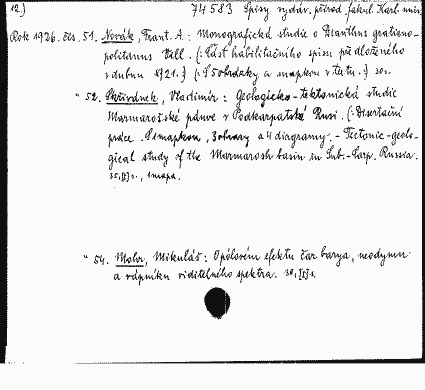 12.) 74583 Spisy vydáv. přírod. fakul. Karl. univ.
Rok 1926. čís. 51. Novák, Frant. A.: Monografická studie o Dianthus gratiano-
politanus Vill. (: Část habilitačního spisu předloženého
v dubnu 1921.) (: S obrázky a mapkou v textu.) 30s.
" 52. Skřivánek, Vladimír: Geologicko-tektonická studie
Marmarošské pánve v Podkarpatské Rusi. (: Disertační
práce. S mapkou, 3 obrazy a 4 diagramy. - Tectonic-geolo-
gical study of the Marmarosh basin in Sub.-Carp. Russia.
35, [1] s., 1 mapa.
" 54. Mohr, Mikuláš: O pólovém efektu čar barya, neodymu
a vápníku viditelného spektra. 30, [1] s.